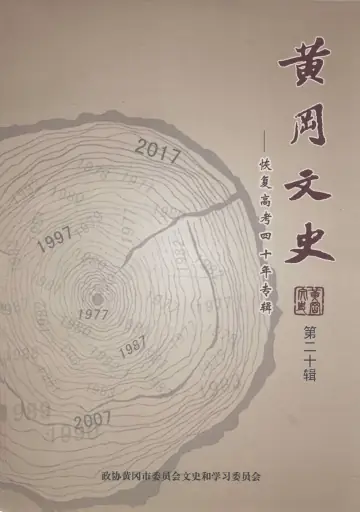 黄冈文史
——恢复高考四十年专辑
黄冈文史
第二十辑
2017
1997
1977
1987
2007
1992
1999
政协黄冈市委员会文史和学习委员会